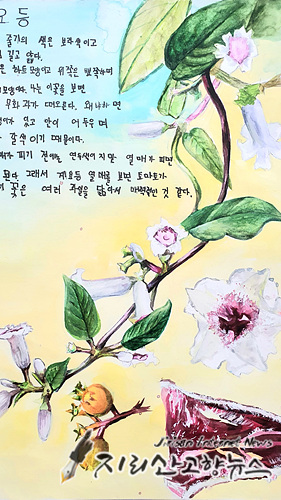 요등
줄기의 색은 보라색이고
길고 얇다.
은 하트모양이고 위쪽은 뾰족하며
모양이다. 나는 이꽃을 보면
무화과가 떠오른다. 왜냐하면
있고 안이 어두우며
갈색이기 때문이다.
피기 전에는 연두색이지만 열매가 피면
된다. 그래서 계요등 열매를 보면 토마토가
꽃은 여러 과일을 닮아서 매력적인 것 같다.
Jirisan Internet News
지리산고향뉴스